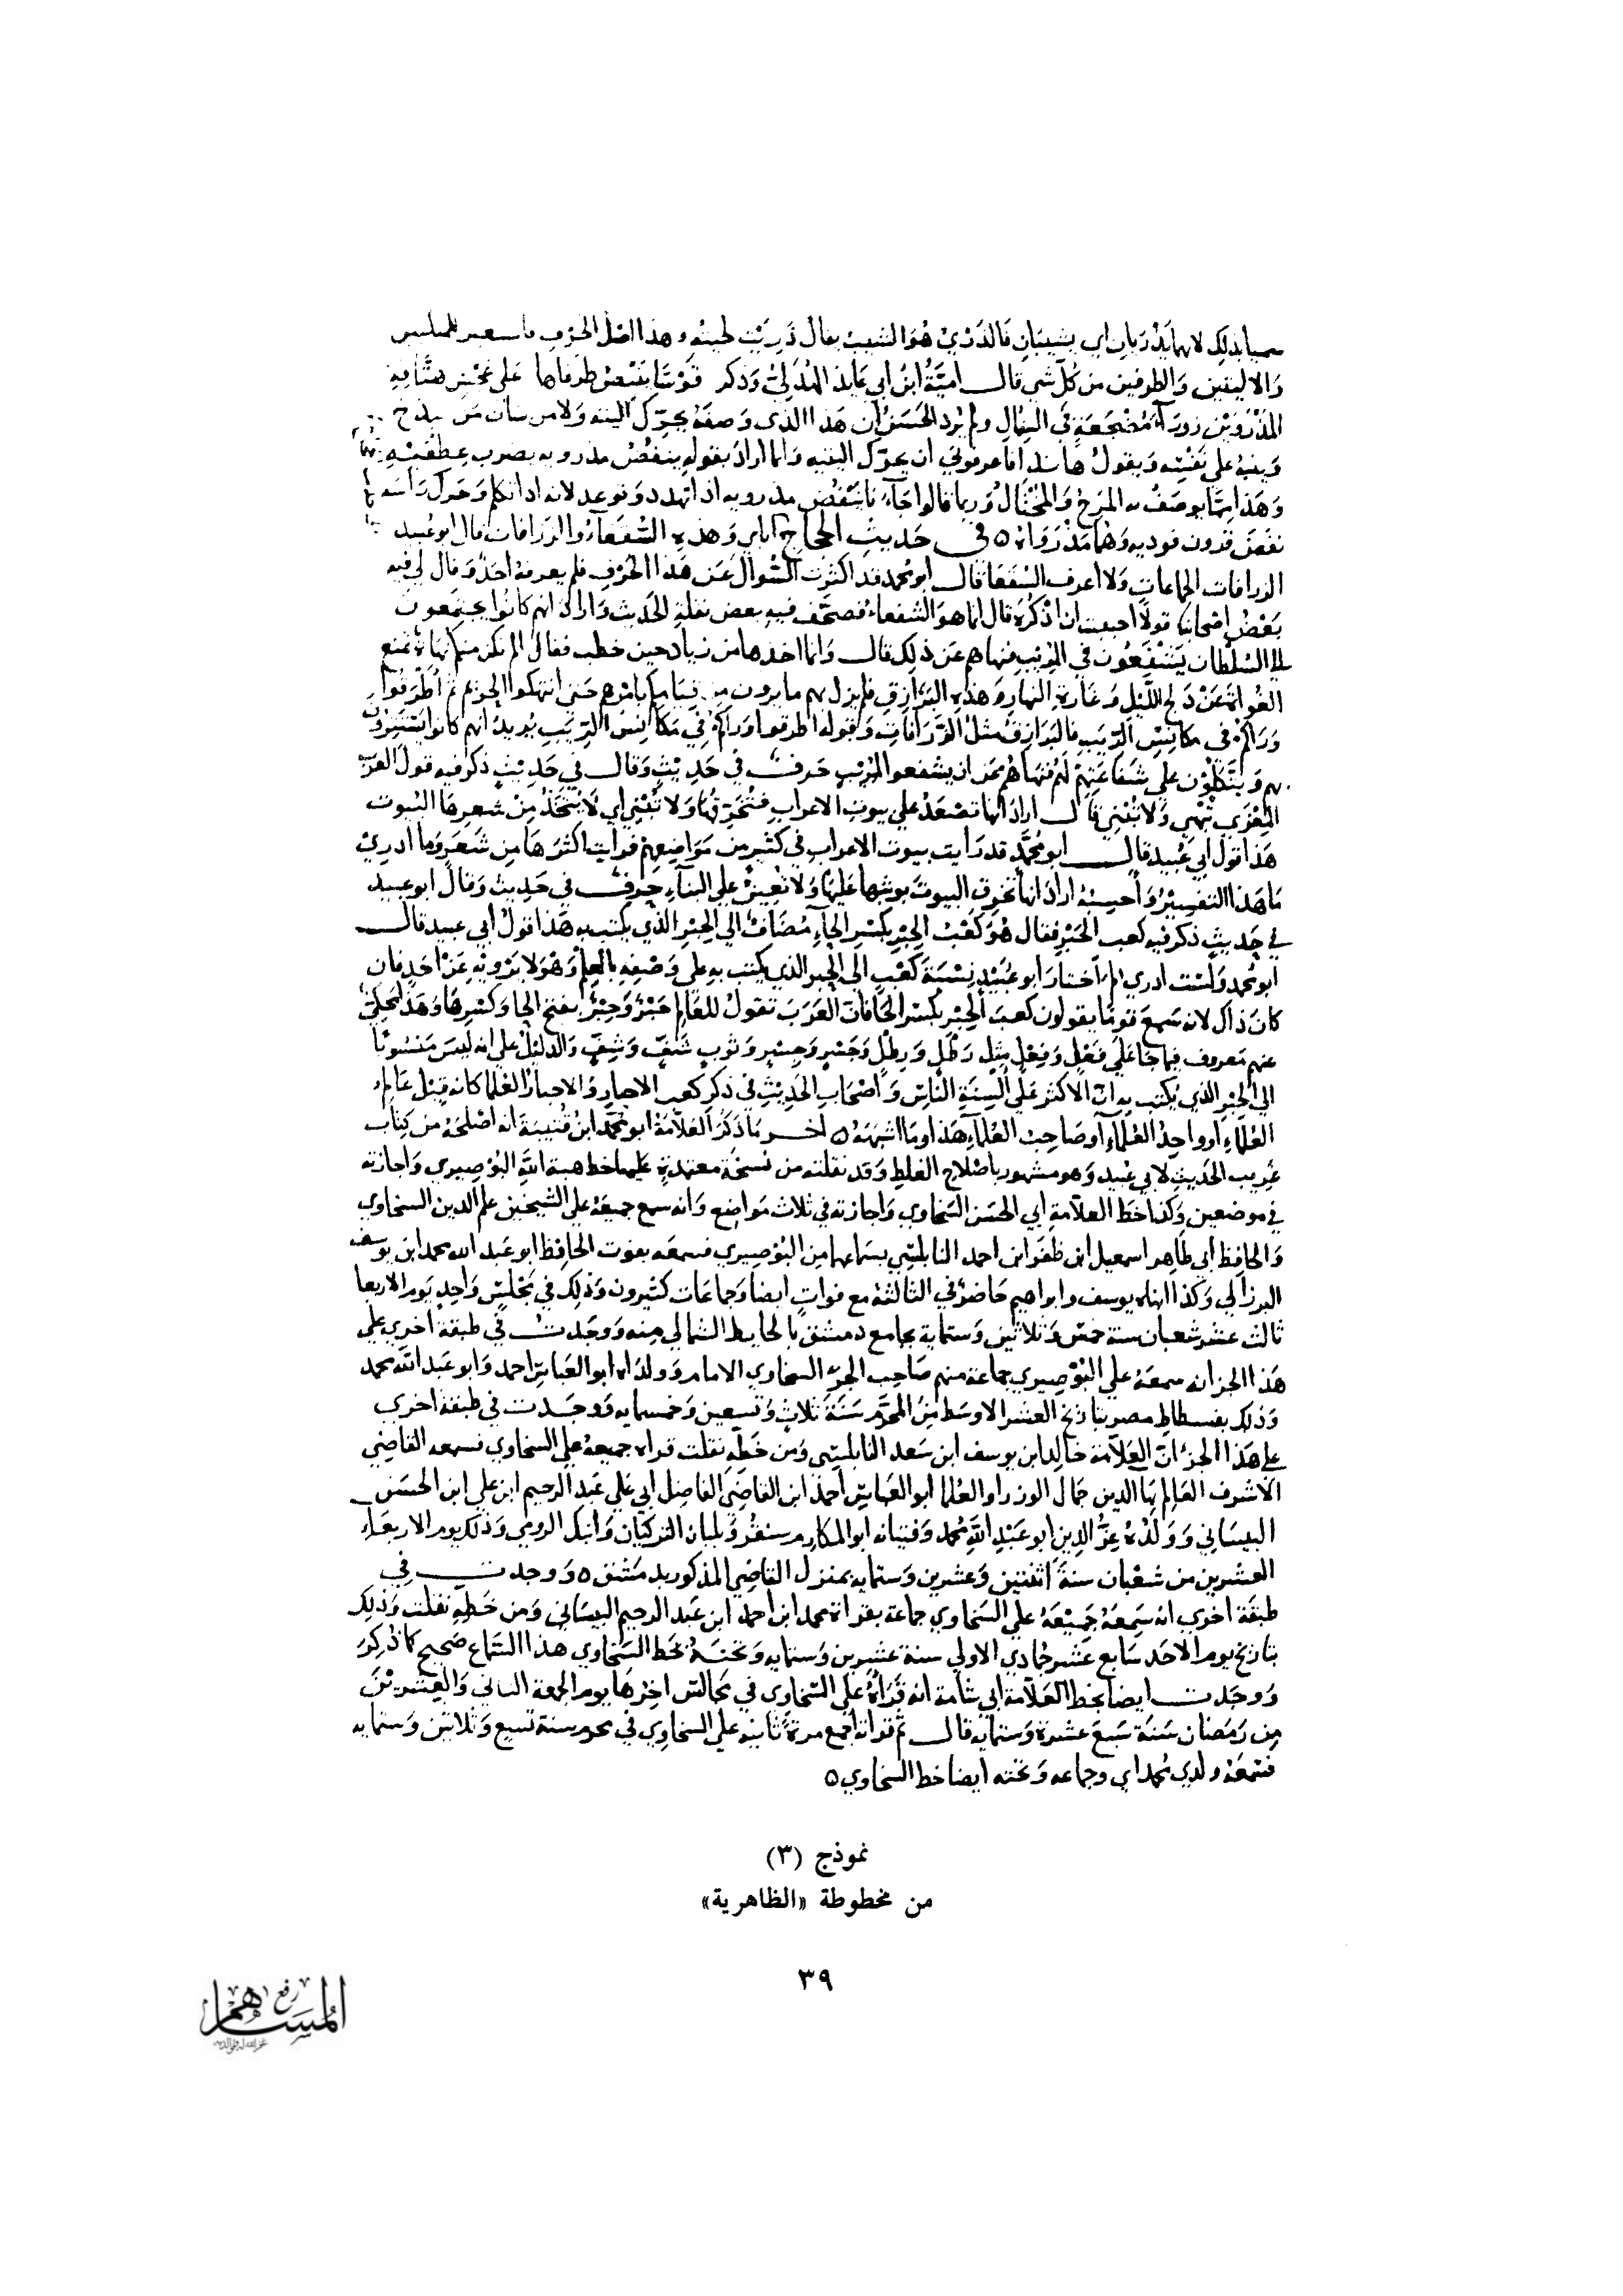 سميا بذلك لانهما يذريان اي يشيبان فالذري هو الشيب يقال ذريت لحيته وهذا اصل الحرف
والاليتين والطرفين من كل شي قال امية ابن ابي عايذ الهذلي وذكر قوسا ينبض طرفاها على عجس هتافة
المذروين زوراء مضجعة في الشمال ولم يرد الحسن ان هذا الذي وصفه يحرك اليته ولا من شان من يبذخ
وينبه على نفسه ويقول ها نذا فاعرفوني ان يحرك اليتيه وانما اراد بقوله ينفض مذرويه يضرب عطفيه
وهذا مما يوصف به المرح والمختال وربما قالوا جاء فا ينفض مذرويه اذا تهدد وتوعد لانه اذا تكلم وحرك راسه
نفض قرون فوديه وهما مذرواه ٥ في حديث الحجاج اياي وهذه السقفاء والزرافات قال ابو عبيد
الزرافات الجماعات ولا اعرف السقفا قال ابو محمد قد اكثرت السوال عن هذا الحرف فلم يعرفه احد وقال لي فيه
بعض اصحابنا قولا احببت ان اذكره قال انما هو الشفعاء فصحف فيه بعض نقلة الحديث واراد انهم كانوا يجتمعون
الى السلطان يتشفعون في المريب فنهاهم عن ذلك قال وانما اخذها من زياد حين خطب فقال الم تكن منكم نهاة تمنع
الغواة عن دلج الليل وغارة النهار وهذه البرازق فلم يزل بهم ما يرون من قيامكم بامرهم حتى انتهكوا الحريم ثم اطرقوا
وراكم في مكانس الريب فالبرازق مثل الزرافات وقوله اطرقوا وراكم في مكانس الريب يريد انهم كانوا يستترون
بهم ويتكلون على شفاعتهم لهم فنهاهم عن ان يشفعوا لمريب حرف في حديث وقال في حديث ذكر فيه قول العرب
المعزى تبهي ولا تبني قال اراد انها تصعد على بيوت الاعراب فتخرقها ولا تبني اي لا يتخذ من شعرها البيوت
هذا قول ابي عبيد قال ابو محمد قد رايت بيوت الاعراب في كثير من مواضعهم فرايت اكثرها من شعر وما ادري
ما هذا التفسير واحسبه اراد انها تخرق البيوت بوثبها عليها ولا تعين على البناء حرف في حديث وقال ابو عبيد
في حديث ذكر فيه كعب الحبر فقال هو كعب الحبر بكسر الحاء مضاف الى الحبر الذي يكتب به هذا قول ابي عبيد قال
ابو محمد ولست ادري لم اختار ابو عبيد نسبة كعب الى الحبر الذي يكتب به على وصفه بالعلم وهو لا يرويه عن احد فان
كان ذاك لانه سمع قوما يقولون كعب الحبر بكسر الحا فان العرب تقول للعالم حبر وحبر بفتح الحا وكسرها وهذا محكي
عنهم معروف فيما جا على فعل وفعل مثل رطل ورطل وجسر وجسر وثوب شف وشف والدليل على انه ليس منسوبا
الى الحبر الذي يكتب به ان الاكثر على السنة الناس واصحاب الحديث في ذكر كعب الاحبار والاحبار العلما كانه قيل عالم
العلماء او واحد العلماء او صاحب العلماء هذا وما اشبهه ٥ اخر ما ذكر العلامة ابو محمد ابن قتيبة انه اصلحه من كتاب
غريب الحديث لابي عبيد وهو مشهور باصلاح الغلط وقد نقلته من نسخة معتمدة عليها خط هبة الله البوصيري واجازته
في موضعين وكذا خط العلامة ابي الحسن السخاوي واجازته في ثلاث مواضع وانه سمع جميعه على الشيخين علم الدين السخاوي
والحافظ ابي طاهر اسمعيل ابن ظفر ابن احمد النابلسي بسماعهما من البوصيري فسمعه بفوت الحافظ ابو عبد الله محمد ابن يوسف
البرزالي وكذا ابناه يوسف وابراهيم حاضر في الثالثة مع فوات ايضا وجماعات كثيرون وذلك في مجلس واحد يوم الاربعا
ثالث عشر شعبان سنة خمس وثلاثين وستماية بجامع دمشق بالحايط الشمالي منه ووجدت في طبقة اخرى على
هذا الجز انه سمعه على البوصيري جماعة منهم صاحب الجزء السخاوي الامام وولداه ابو العباس احمد وابو عبد الله محمد
وذلك بفسطاط مصر بتاريخ العشر الاوسط من المحرم سنة ثلاث وتسعين وخمسمايه ووجدت في طبقة اخرى
على هذا الجز ان العلامة خالد ابن يوسف ابن سعد النابلسي ومن خطه نقلت قراه جميعه على السخاوي فسمعه القاضي
الاشرف العالم بها الدين جمال الوزرا والعلما ابو العباس احمد ابن القاضي الفاضل ابي علي عبد الرحيم ابن علي ابن الحسن
البيساني وولده عز الدين ابو عبد الله محمد وفتيانه ابو المكارم سنقر وبلبان التركيان وايبك الرومي وذلك يوم الاربعاء
العشرين من شعبان سنة اثنتين وعشرين وستمايه بمنزل القاضي المذكور بدمشق ٥ ووجدت في
طبقة اخرى انه سمعه جميعه على السخاوي جماعة بقراة محمد ابن احمد ابن عبد الرحيم البيساني ومن خطه نقلت وذلك
بتاريخ يوم الاحد سابع عشر جمادي الاولي سنة عشرين وستمايه وتحته بخط السخاوي هذا السماع صحيح كما ذكر
ووجدت ايضا بخط العلامة ابي شامة انه قراه على السخاوي في مجالس اخرها يوم الجمعة الثاني والعشرين
من رمضان سنة سبع عشرة وستمايه قال ثم قراته اجمع مرة ثانية على السخاوي في محرم سنة تسع وثلاثين وستمايه
فسمعه ولدي محمد ابي وجماعه وتحته ايضا خط السخاوي ٥
نموذج (٣)
من مخطوطة «الظاهرية»
٣٩
رفع
المساهم
غفر الله له ولوالديه